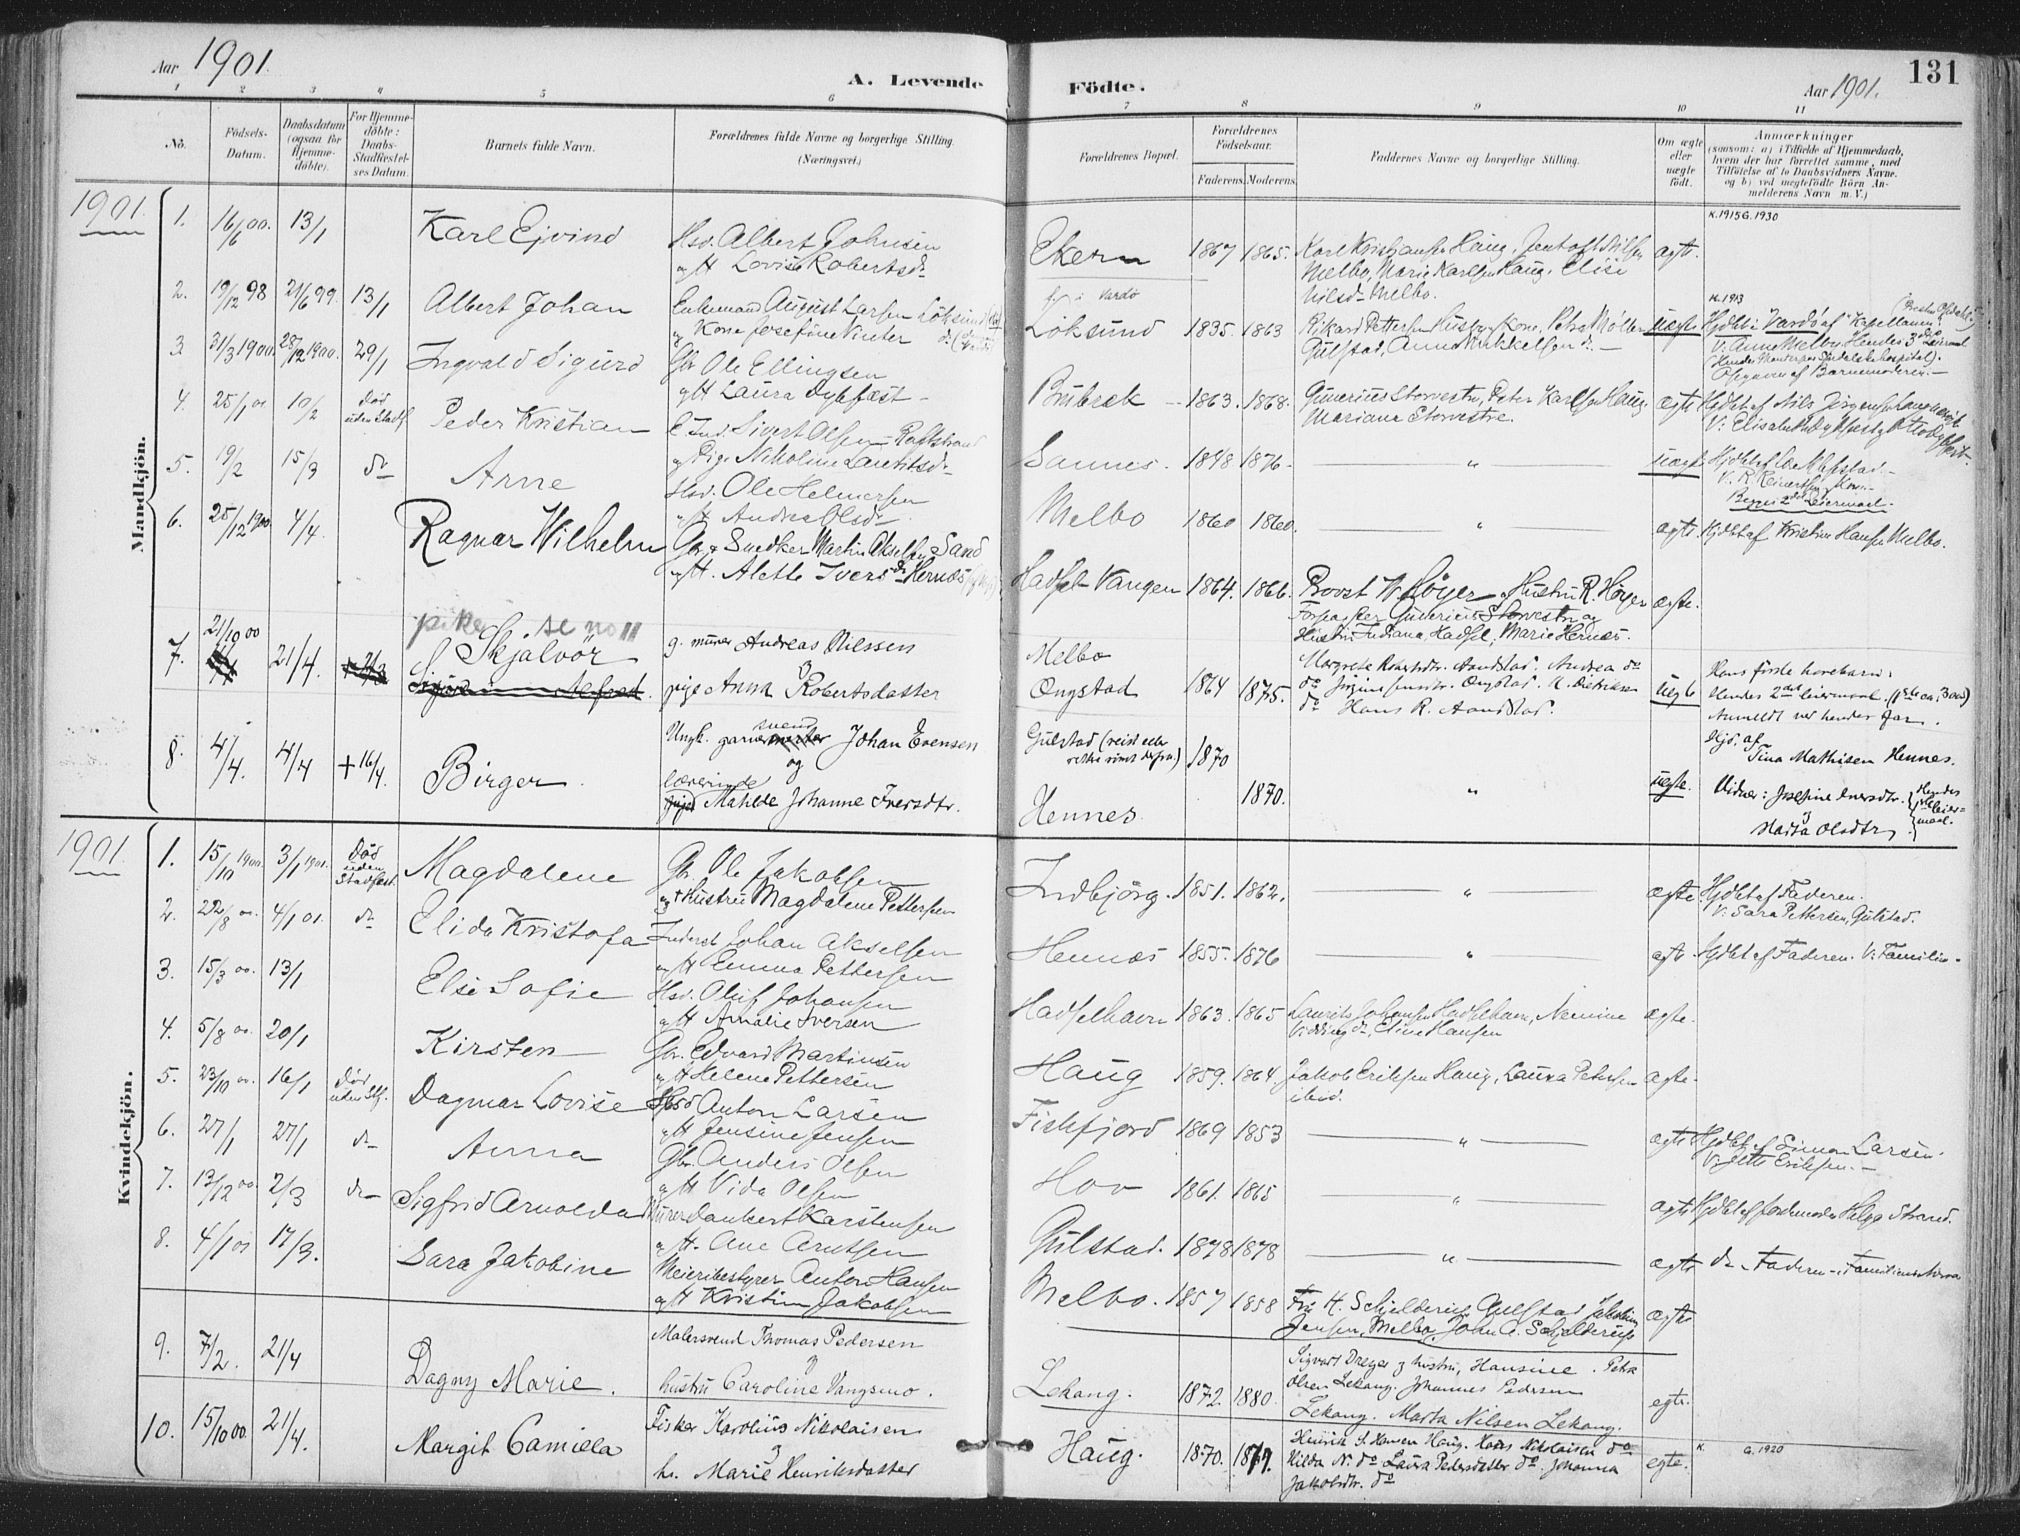 Aar 1901.
A. Levende
Födte.
Aar 1901.
131
1 2 3 4 5 6 7 8 9 10 11
No.
Födsels-
Datum.
Daabsdatum
(ogsaa for
Hjemme-
döbte).
For Hjemme-
döbte:
Daabs-
Stadfæstel-
ses Datum.
Barnets fulde Navn.
Forældrenes fulde Navne og borgerlige Stilling.
(Næringsvei.)
Forældrenes Bopæl.
Forældrenes
Födselsaar.
Faderens. Moderens.
Faddernes Navne og borgerlige Stilling.
Om ægte
eller
uægte
födt.
Anmærkninger
(saasom: a) i Tilfælde af Hjemmedaab,
hvem der har forrettet samme, med
Tilföielse af to Daabsvidners Navne.
og b) ved uegtefödte Börn An-
melderens Navn m. V.)
1901.
Mandkjön.
1. 16/6 00. 13/1 Karl Ejvind
Hsd. Albert Johnsen
og H Lovise Robertsdr
Ekern 1867 1865.
Melbo, Marie Karlsen Haug, Elise
Nilsdr Melbo.
ægte.
K.1915 G.1930
2. 19/12 98 21/6 99. 13/1 Albert Johan
Enkemand August Larsen Löksund
og Kone Josefine Vinter
Löksund 1835. 1863
Rikard Pettersen Husby, Kone, Petra Møller
Gulstad, Anna Mikkelsen do
uægte
K.1913
Hjdbt i Vardø af Kapellanen
3. 31/3 1900. 28/12 1900. 29/1 Ingvald Sigurd
Gbr. Ole Ellingsen
og H Laura Dybfæst
Bübræk 1863. 1868.
Gunerius Storvestre, Peter Karlsen Haug.
Mariane Storvestre.
ægte
4. 25/1 01 10/2 Død
uden Stadf. Peder Kristian
Sivert Olsen - Raftstrand
og Pige Nikoline Lauritsdr
Sannes. 1876
uægte
5. 19/2 15/3 do Arne
Hsd. Ole Helmersen
og H Andrea Olsdr
Melbo 1860 1860.
ægte. Hjdbt af Kristine Hansen Melbo.
6. 25/12 1900 4/4. Ragnar Wilhelm
Gbr. & Snedker Martin Akselsen Sand
og H. Alette Iversdr Hernæs
Hadsel-Vangen 1864. 1866.
Provst W. Høyer, Hustru R. Høyer
Forpagter Gunerius Storvestre og
Hustru Indiana Hadsel, Marie Hernæs.
ægte.
pike se no 11
7. 21/10 00 21/4. Skjalvör
g. murer Andreas Nilssen
og
pige Anna Robertsdatter
Melbo
Ongstad 1864 1875.
Margrete Robertsdtr. Aandstad. Andrea do
Hans R. Aandstad.
uegte
Hans förste horebarn:
Hendes 2det leiermaal.
Anmeldt ved hendes far.
8. 4/4. 4/4 +16/4. Birger.
Ungk. garversvend Johan Evensen
og
lærerinde
Mathilde Johanne Iversdtr.
Gulstad 1870
Hennes. 1870.
uegte.
Hjd. af
Tina Mathisen Hennes.
Vidner: Josefine Iversdtr.
og
Marta Olsdtr.
Hendes
1ste leier-
maal.
1901.
Kvindekjön.
1. 15/10 1900. 3/1 1901. Død
uden
Stadfæst. Magdalene
Gbr. Ole Jakobsen
og Hustru Magdalene Pettersen
Indbjörg. 1851. 1862.
ægte. Hjdbt af Faderen.
V: Sara Pettersen, Gulstad.
2. 22/8 00. 4/1 01. do Elida Kristofa
Inderst Johan Akselsen
og H Emma Pettersen
Hennæs 1855. 1876
ægte. Hjdbt af Faderen. V: Familie.
3. 15/3 00. 13/1 Else Sofie
Hsd. Oluf Johansen
og H Amalie Iversen
Hadselhavn 1863. 1865
Laurits Johansen Hadselhavn, Nomine
Vidding do, Eline Hansen
ægte.
4. 5/8 00. 20/1 Kirsten
Gbr. Edvard Martinsen
og H Helene Pettersen
Haug 1859. 1864
Jakob Eriksen Haug, Laura Petersen
ibid.
ægte.
5. 23/10 00. 16/1 Død
uden Stf. Dagmar Lovise
Hsd Anton Larsen
og H Jensine Jensen
Fiskfjord 1869 1853
ægte Hjdbt af Simon Larsen.
V: Jette Eriksen.
6. 27/1 27/1 do Anna
Gbr. Anders Olsen
og H Vida Olsen
Hov 1861. 1865
ægte Hjdbt af Jordemoder Helga Strand.
7. 13/12 00. 2/3 do Sigfrid Arnolda
Murer Dankert Karstensen
og H. Ane Arntsen
Gulstad. 1878 1878
ægte do Faderen
8. 4/1 01 17/3. Sara Jakobine
Meieribestyrer Anton Hansen
og H Kristine Jakobsen
Melbo. 1857 1858
Fru H. Schjelderup Gulstad, Jakobine
Jensen, Melbo, John C. Schjelderup
ægte
9. 7/2. 21/4 Dagny Marie.
Malersvend Thomas Pedersen
og
hustru Caroline Vangsmo.
Lekang. 1872. 1880.
Sigvart Dreyer og hustru, Hansine. Petra
Olsen Lekang. Johannes Pedersen
Lekang. Marta Nilsen Lekang.
egte.
10. 15/10 00. 21/4. Margit Camilla
Fisker Karolius Nikolaisen
og
h. Marie Henriksdatter
Haug. 1870. 1879.
Henrik S. Hansen Haug. Hans Nikolaisen do
Hilda N. do Laura Pedersdatter do. Johanna
Jakobsdtr. do
egte.
K. G. 1920